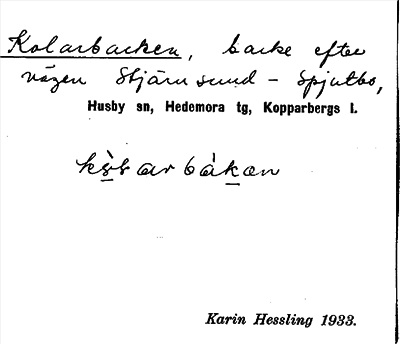 Kolarbacken, backe efter
vägen Stjärnsund - Spjutbo,
Husby sn, Hedemora tg, Kopparbergs l.
Karin Hessling 1933.